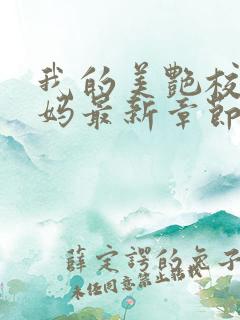 我的美艳校
妈最新章节
薛定谔的兔子
未经同意禁止转载